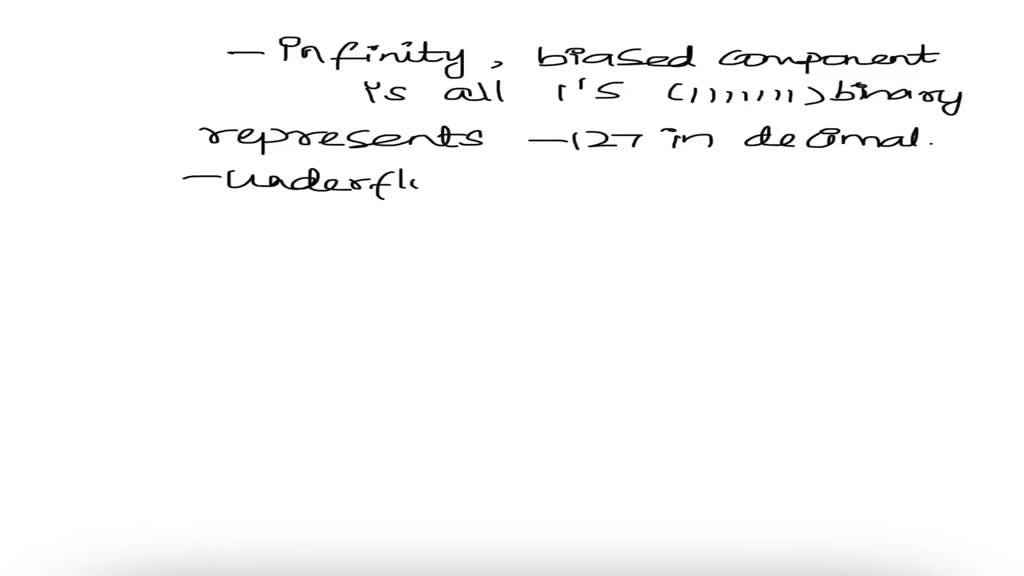 - Infinity, biased component
is all 1's (1111111) binary
represents -127 in decimal.
- Underfl